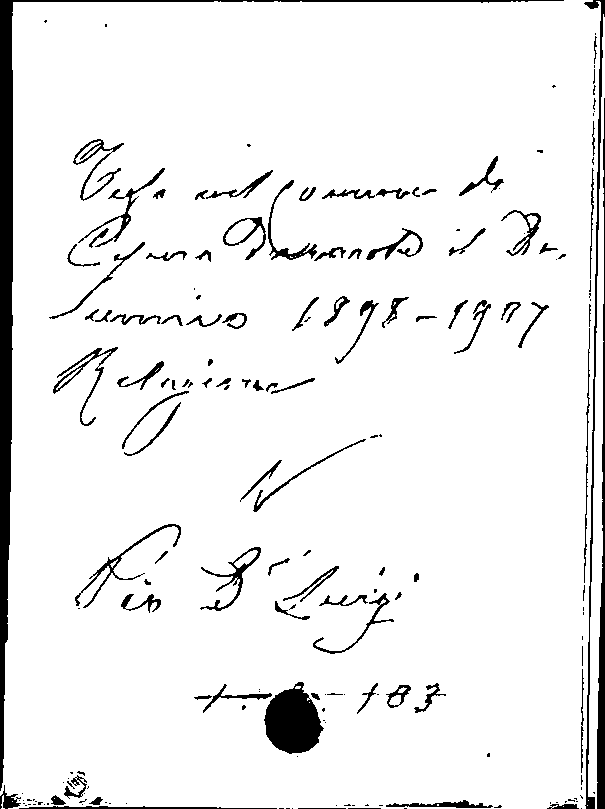 nel Comune di
Cesena Durante il De-
cennio 1898-1907
Relazione
Pio Dr Luigi
183